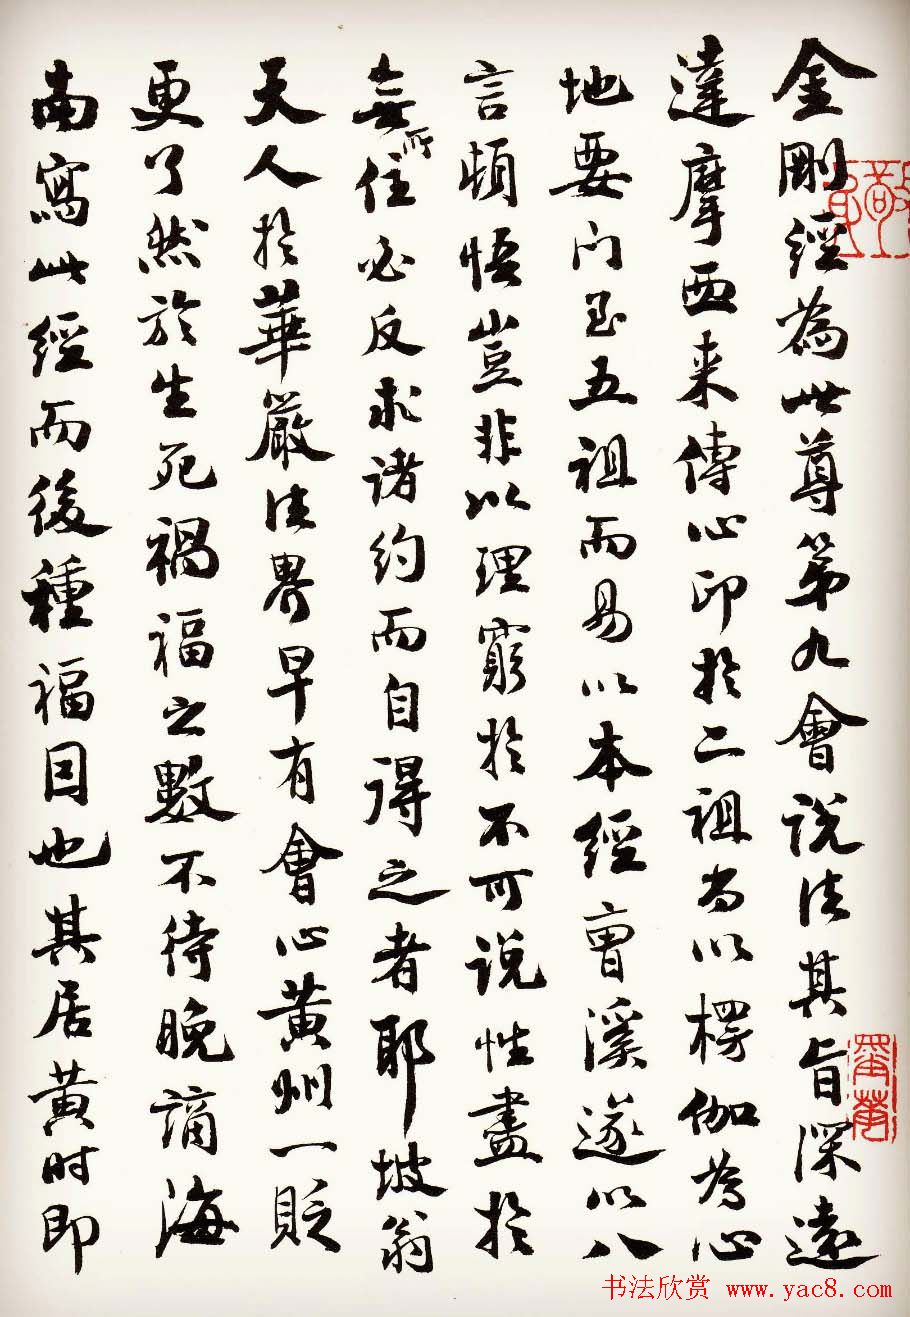 金剛經為世尊第九會说法其旨深遠
達摩西来傳心印於二祖尚以楞伽為心
地要门至五祖而易以本經曹溪遂以八
言頓悟豈非以理窮於不可说性盡於
無所住必反求诸约而自得之者耶坡翁
天人於華嚴法界早有會心黄州一貶
更了然於生死禍福之數不待晚謫海
南寫此經而後種福因也其居黄时即
书法欣赏 www.yac8.com